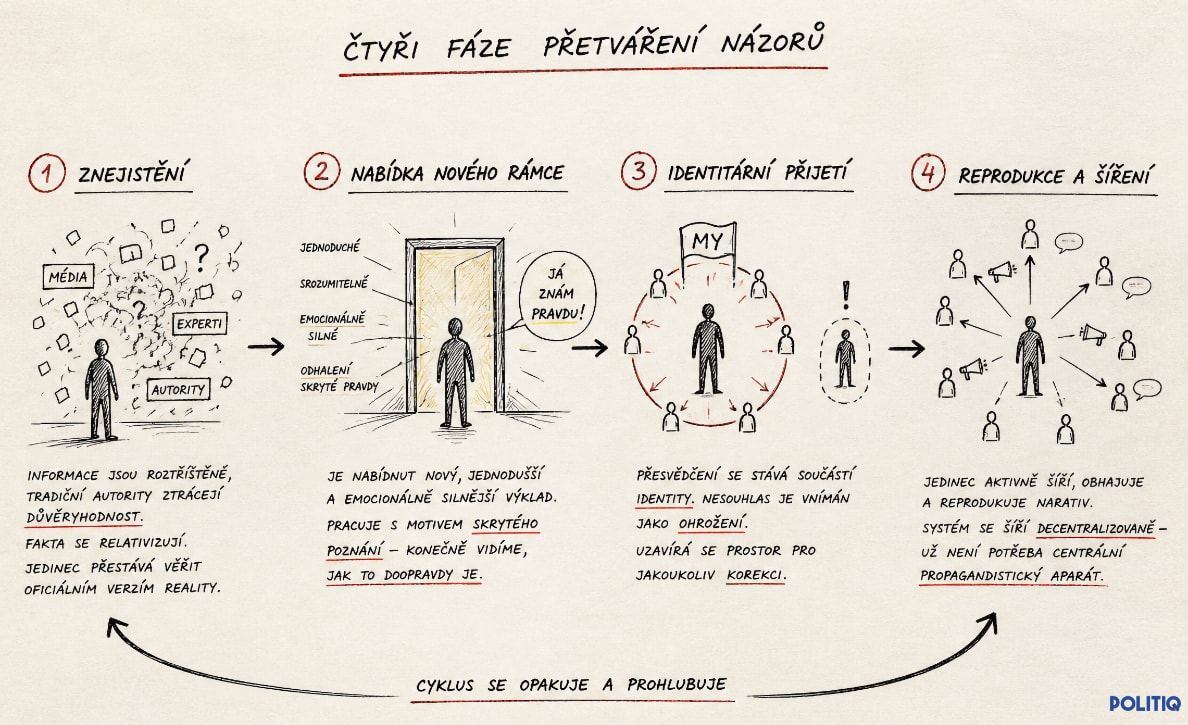 ČTYŘI FÁZE PŘETVÁŘENÍ NÁZORŮ
1 ZNEJISTĚNÍ
MÉDIA
?
?
EXPERTI
AUTORITY
INFORMACE JSOU ROZTŘÍŠTĚNÉ,
TRADIČNÍ AUTORITY ZTRÁCEJÍ
DŮVĚRYHODNOST.
FAKTA SE RELATIVIZUJÍ.
JEDINEC PŘESTÁVÁ VĚŘIT
OFICIÁLNÍM VERZÍM REALITY.
2 NABÍDKA NOVÉHO RÁMCE
JEDNODUCHÉ
SROZUMITELNÉ
EMOCIONÁLNĚ
SILNÉ
ODHALENÍ
SKRYTÉ PRAVDY
JÁ
ZNÁM
PRAVDU!
JE NABÍDNUT NOVÝ, JEDNODUŠŠÍ
A EMOCIONÁLNĚ SILNĚJŠÍ VÝKLAD.
PRACUJE S MOTIVEM SKRYTÉHO
POZNÁNÍ – KONEČNĚ VIDÍME,
JAK TO DOOPRAVDY JE.
3 IDENTITÁRNÍ PŘIJETÍ
MY
!
PŘESVĚDČENÍ SE STÁVÁ SOUČÁSTÍ
IDENTITY. NESOUHLAS JE VNÍMÁN
JAKO OHROŽENÍ.
UZAVÍRÁ SE PROSTOR PRO
JAKOUKOLIV KOREKCI.
4 REPRODUKCE A ŠÍŘENÍ
JEDINEC AKTIVNĚ ŠÍŘÍ, OBHAJUJE
A REPRODUKUJE NARATIV.
SYSTÉM SE ŠÍŘÍ DECENTRALIZOVANĚ –
UŽ NENÍ POTŘEBA CENTRÁLNÍ
PROPAGANDISTICKÝ APARÁT.
CYKLUS SE OPAKUJE A PROHLUBUJE
POLITIQ